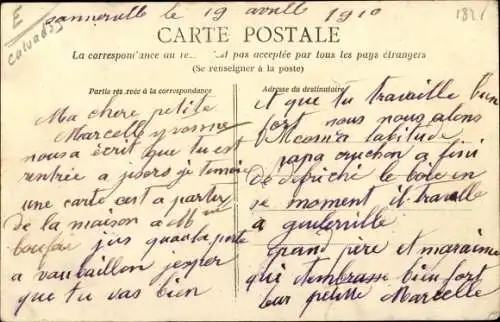 Sannerville le 19 avril 1910
E
Calvados
CARTE POSTALE
La correspondance au pas acceptée par tous les pays étrangers
(Se renseigner à la poste)
Partie réservée à la correspondance
Ma chere petite
Marcelle yvonne
nous a écrit que tu est
rentrée a
une carte est a parter
de la maison a Mme
jus qua la porte
a jesper
que tu vas bien
Adresse du destinataire
et que tu travaille bien
fort nous nous alons
Comm a labitude
papa cruchon a fini
de defriché le bois en
se moment il travalle
a
grand père et maraine
qui tembrasse bien fort
leur petitte Marcelle